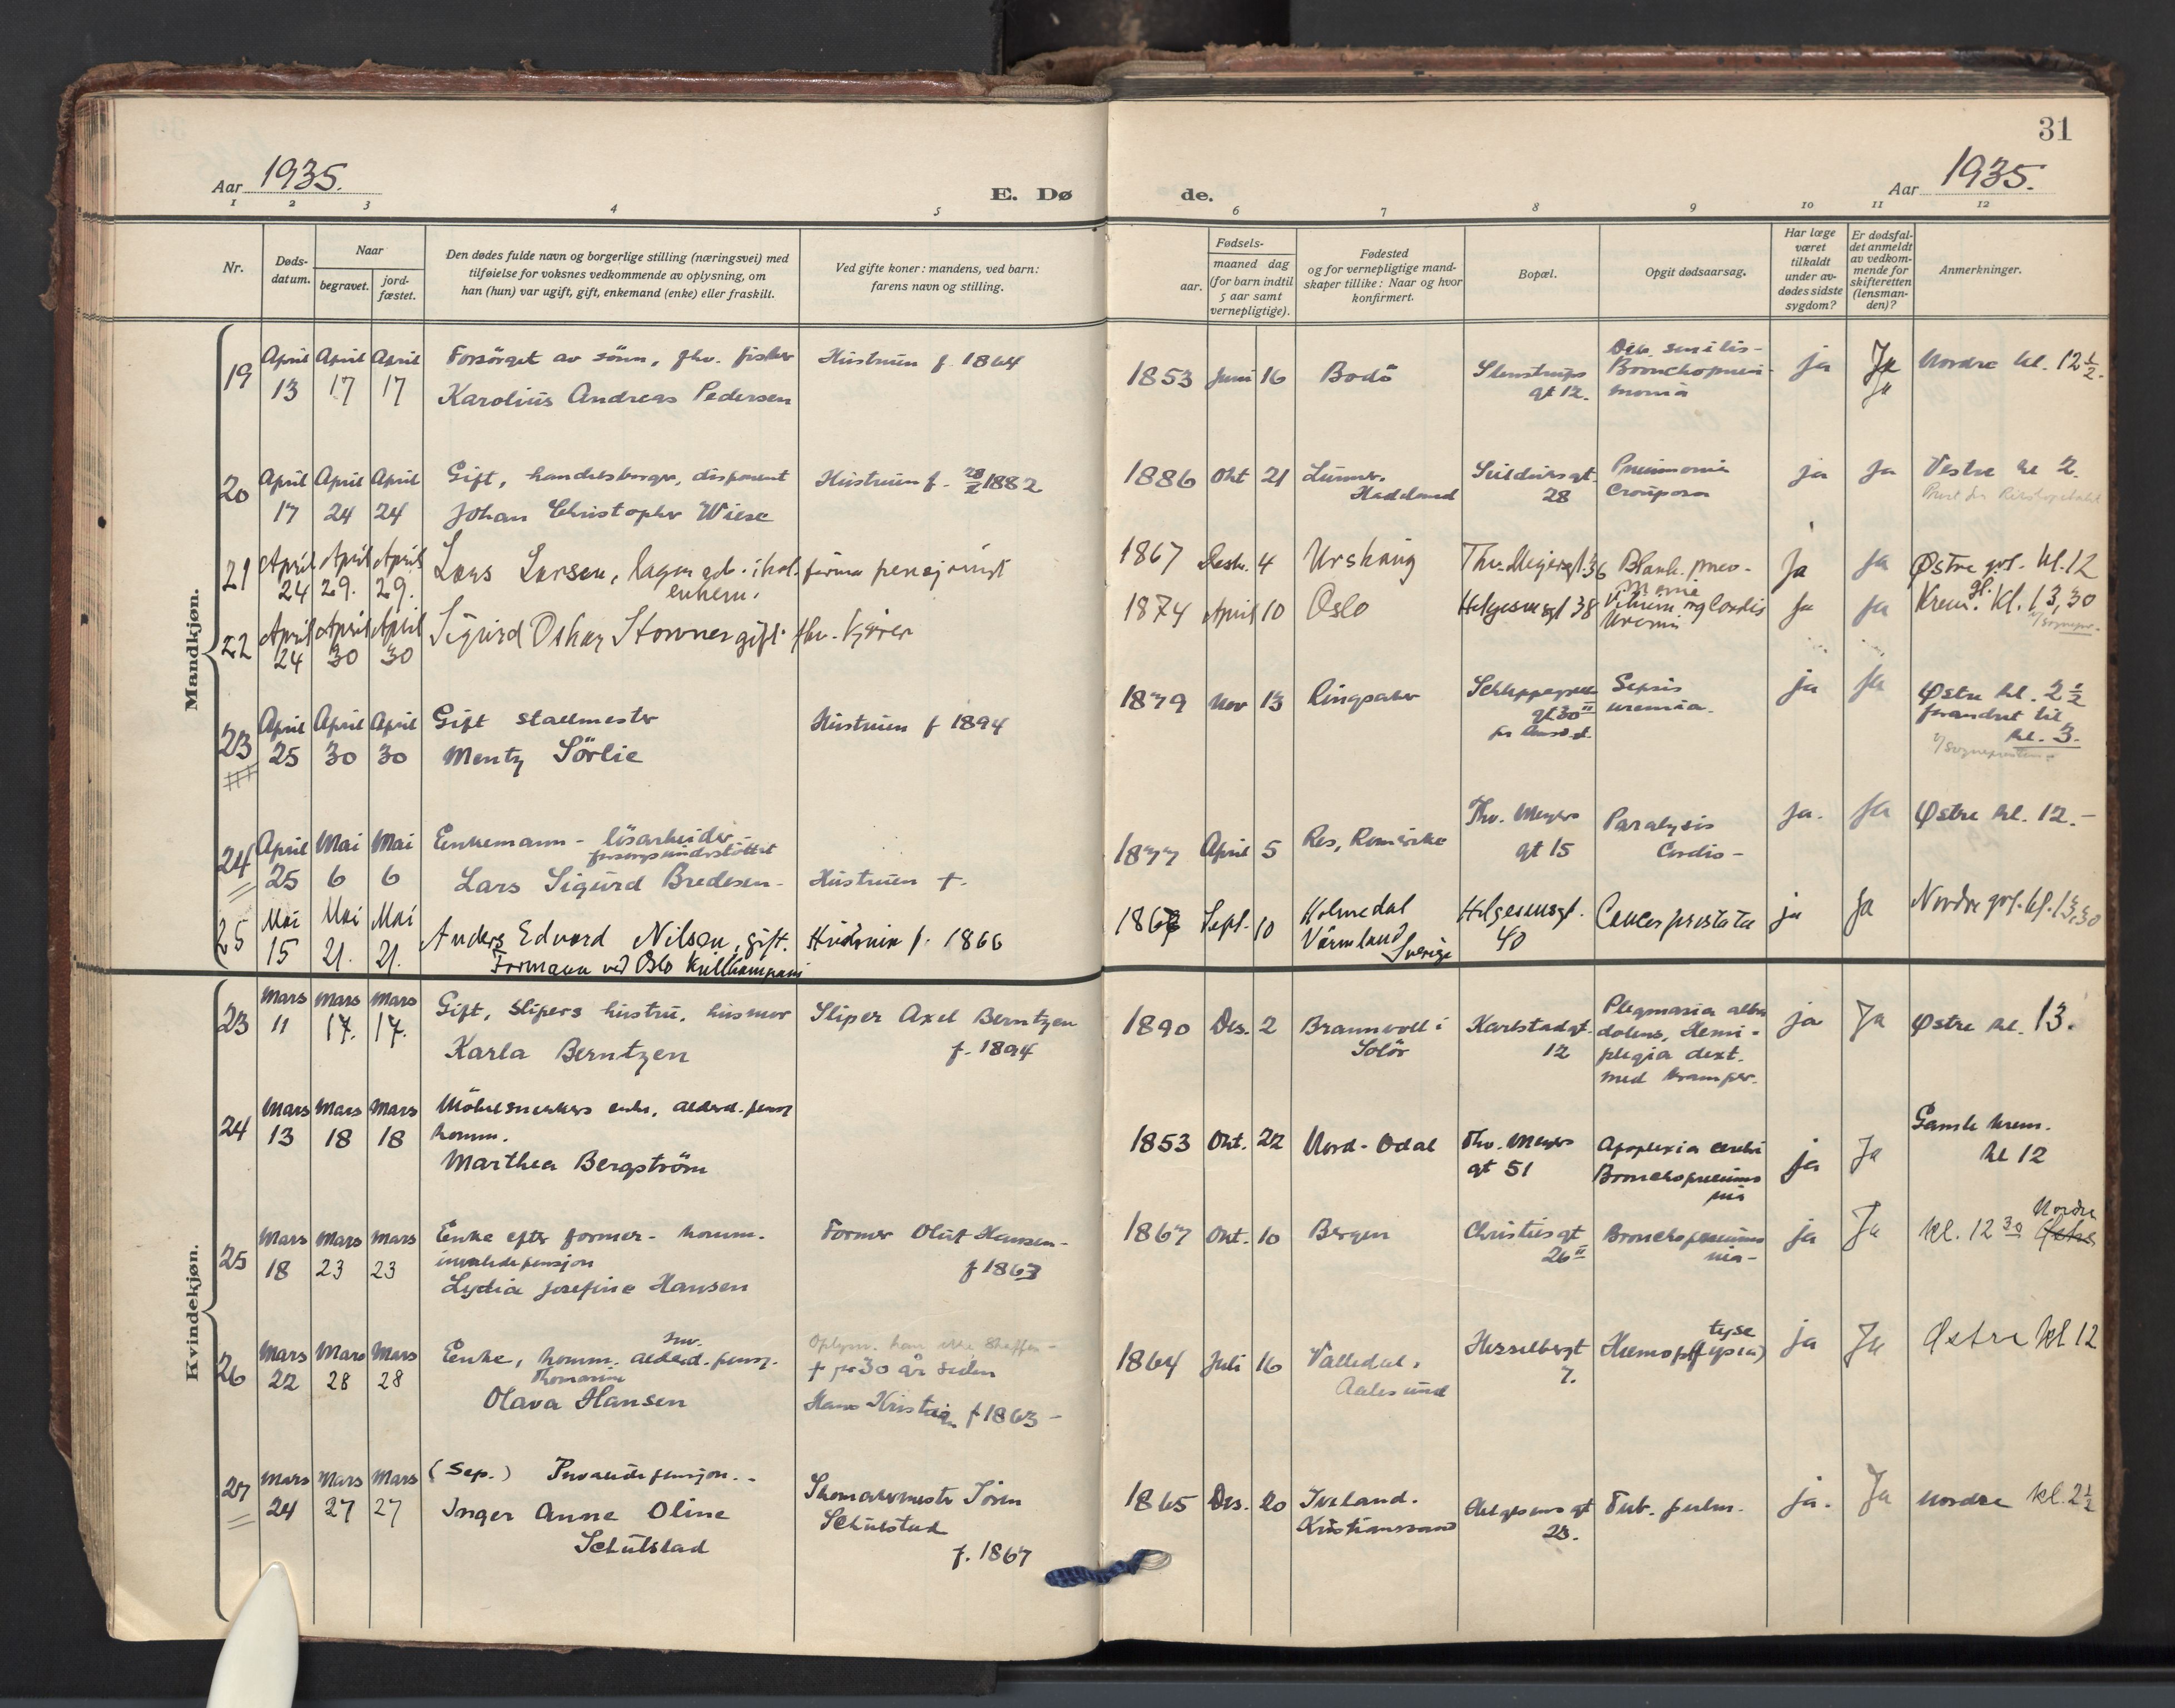 31
Aar 1935.
E. Dø
de.
Aar 1935.
1 2 3 4 5 6 7 8 9 10 11 12
Nr.
Døds-
datum.
Naar
begravet.
jord-
fæstet.
Den dødes fulde navn og borgerlige stilling (næringsvei) med
tilføielse for voksnes vedkommende av oplysning, om
han (hun) var ugift, gift, enkemand (enke) eller fraskilt.
Ved gifte koner: mandens, ved barn:
farens navn og stilling.
Fødsels-
aar.
maaned dag
(for barn indtil
5 aar samt
vernepligtige).
Fødested
og for vernepligtige mand-
skaper tillike: Naar og hvor
konfirmert.
Bopæl.
Opgit dødsaarsag.
Har læge
været
tilkaldt
under av-
dødes sidste
sygdom?
Er dødsfal-
det anmeldt
av vedkom-
mende for
skifteretten
(lensman-
den)?
Anmerkninger.
Mandkjøn.
19 April 13 April 17 April 17
Forsörget av sönn, fhv. fisker
Karolius Andreas Pedersen
Hustruen f. 1864
1853 Juni 16 Bodö
Stenstrups
gt 12.
Deb. senilis-
Bronchopneu-
monia
ja Ja Ja
Nordre kl. 12 1/2.
20 April 17 April 24 April 24
Gift, handelsborger, disponent
Johan Christopher Wiese
Hustruen f. 28/X 1882
1886 Okt 21
Lunner.
Hadeland
Seilduksgt.
28
Pneumonia
Crouposa
ja Ja
Vestre kl 2.
21 April 24 April 29. April 29.
Lars Larsen, lager arb. i kol. firma pensjonist
enkem.
1867 Desbr. 4 Urskaug
Thv. Meyersgt. 36
Blank. pneo-
monie
Ja Ja
Østre grl. kl. 12
22 April 24 April 30 April 30
Sigurd Oskar Stovner gift fhv. kjører
1874 April 10 Oslo
Helgesensgt 38
Vitium org Cordis
Uremi
Ja Ja
Krem. gl. kl. 13,30
v/sognepr.
23 April 25 April 30 April 30
Gift stallmester
Mentz Sörlie
Hustruen f 1894
1879 Nov 13 Ringsaker
Schleppegrells
gt. 30 II
Sepsis
uremia.
ja Ja
Østre kl. 2 1/2
forandret til
kl. 3.
v/sognepresten
24 April 25 Mai 6 Mai 6
Enkemann - lösarbeider
forsorgsunderstöttet
Lars Sigurd Bredesen-
Hustruen +.
1877 April 5 Res, Romerike
Thv. Meyers
gt 15
Paralysis
Cordis -
ja. Ja
Østre kl. 12.-
25 Mai 15 Mai 21. Mai 21.
Anders Edvard Nilsen, gift.
Formann ved Oslo Kullkompani
Hustruen f. 1866
1867 Sept. 10
Holmedal
Värmland
Sverige
Helgesensgt.
40
Cancer prostata
ja Ja
Nordre grl. kl. 13,30
Kvindekjøn.
23 Mars 11 Mars 17. Mars 17.
Gift, slipers hustru, husmor
Karla Berntzen
Sliper Axel Berntzen
f. 1894
1890 Des. 2
Brannvoll i
Solör
Karlstadgt.
12
Plegmasia alba
dolens, Hemi-
plegia dext.
med kramper.
ja Ja
Østre kl. 13.
24 Mars 13 Mars 18 Mars 18
Möbelsnekkers enke, alderd. pensj
komm.
Marthea Bergström
1853 Okt. 22 Nord-Odal
Thv. Meyers
gt 51
Apoplexia cerebri
Bronchopneumo
nia
ja Ja
Gamle krem.
kl 12
25 Mars 18 Mars 23 Mars 23
Enke efter former- komm.
invalidepensjon
Lydia Josefine Hansen
Former Oluf Hansen-
f 1863
1867 Okt. 10 Bergen
Christiesgt
26 II
Bronchopneumo
nia-
ja Ja
kl. 12 30 Nordre
Østre
26 Mars 22 Mars 28 Mars 28
Enke, komm. alderd. pensj.
Thomasine
Olava Hansen
Oplysn. kan ikke skaffes -
+ for 30 år siden
Hans Kristian f 1863 -
1864 Juli 16
Valledal,
Aalesund
Hesselbergt
7.
Hemop(typia)
tyse
ja Ja
Østre kl 12
27 Mars 24 Mars 27 Mars 27
(Sep.) Invalidepensjon..
Inger Anne Oline
Schulstad
Skomakermester Sören
Schulstad
f. 1867
1865 Des. 20
Iveland.
Kristianssand
Helgesens gt
23.
Tub. pulm.
ja. Ja
Nordre kl. 2 1/2